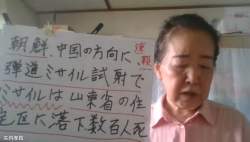 朝鮮、中国の方向に
速報
弾道ミサイル試射で
ミサイルは山東省の住
宅区に落下数百人死